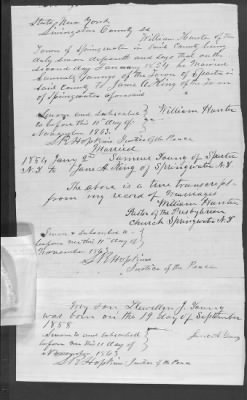 State, New York
Livingston County ss
William Hunter of the
Town of Springwater in said County being
duly sworn deposeth and says that on the
second day January 1854 he married
Samuel Young of the Town of Sparta in
said County to Jane A. King of the Town
of Springwater aforesaid
Sworn and subscribed
before me this 11th day of
November 1863.
William Hunter
S. R. Hopkins Justice of the Peace
Married
1854 Jany 2d Samuel Young of Sparta
N.Y to Jane A King of Springwater N.Y.
The above is a true transcript
from my record of Marriages
William Hunter
Pastor of the Presbyterian
Church Springwater N.Y
Sworn & subscribed to
before me this 11 day of
November 1863
S R Hopkins
Justice of the Peace
My son Llewellyn J. Young
was born on the 19 day of September
1858
Sworn to and subscribed
before me this 11 day
of November 1863
Jane A Young
S R Hopkins Justice of the Peace